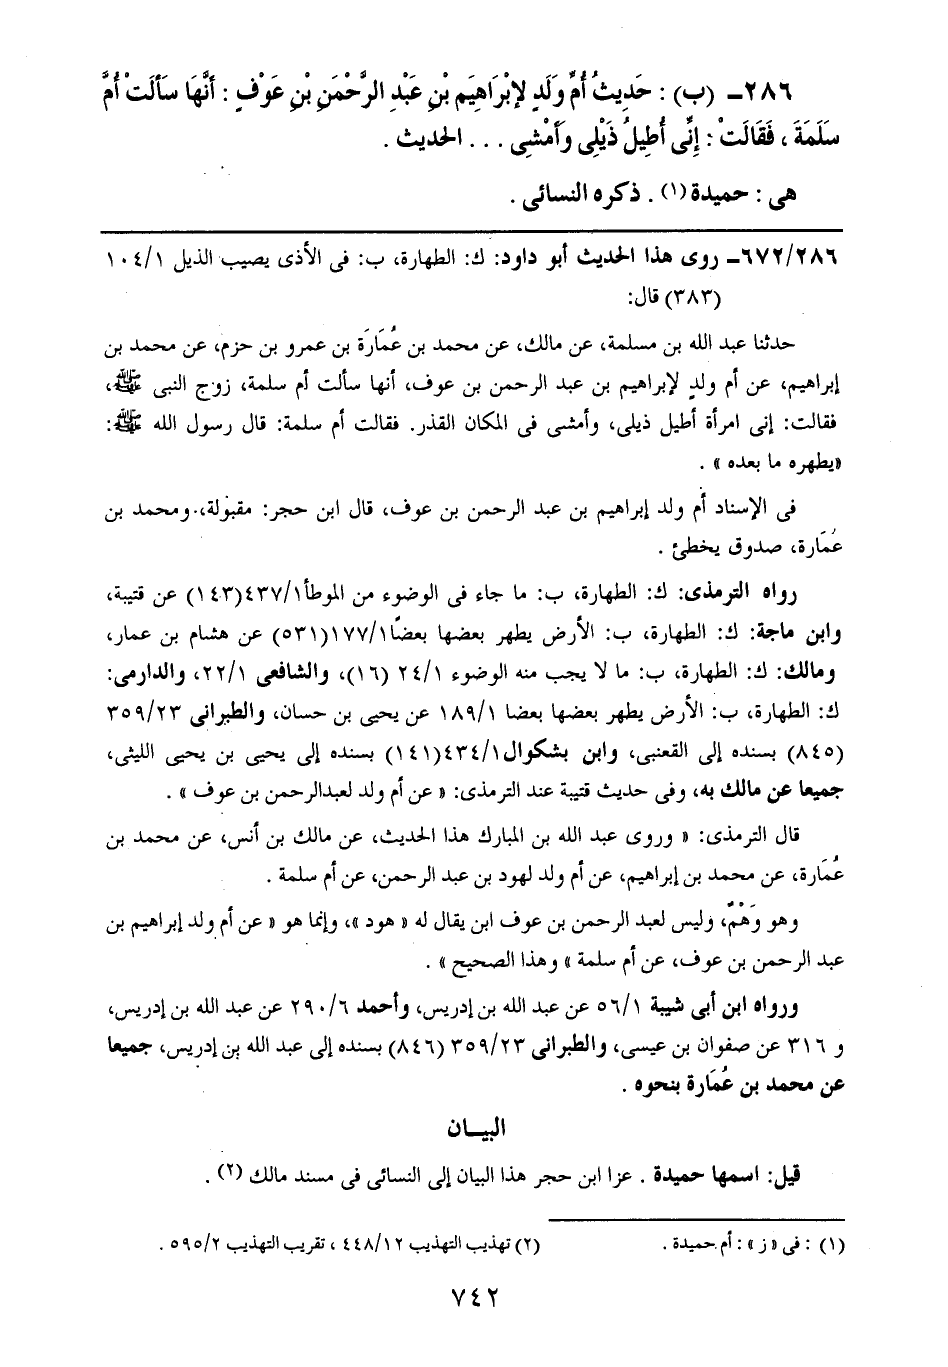 ٢٨٦ـ (ب) : حَدِيثُ أُمِّ وَلَدٍ لإِبْرَاهِيَم بْنِ عَبْدِ الرَّحْمَنِ بْنِ عَوْفٍ : أَنَّهَا سَأَلَتْ أُمَّ
سَلَمَةَ ، فَقَالَتْ : إِنِّى أُطِيلُ ذَيْلِى وَأَمْشِى . . . الحديث .
هى : حميدة (١) . ذكره النسائى .
٦٧٢/٢٨٦ـ روى هذا الحديث أبو داود: ك: الطهارة، ب: فى الأذى يصيب الذيل ١٠٤/١
(٣٨٣) قال:
حدثنا عبد الله بن مسلمة، عن مالك، عن محمد بن عُمَارَة بن عمرو بن حزم، عن محمد بن
إبراهيم، عن أم ولدٍ لإبراهيم بن عبد الرحمن بن عوف، أنها سألت أم سلمة، زوج النبى ﷺ،
فقالت: إنى امرأة أطيل ذيلى، وأمشى فى المكان القذر. فقالت أم سلمة: قال رسول الله ﷺ:
«يطهره ما بعده » .
فى الإسناد أم ولد إبراهيم بن عبد الرحمن بن عوف، قال ابن حجر: مقبولة، ومحمد بن
عُمَارة، صدوق يخطئ .
رواه الترمذى: ك: الطهارة، ب: ما جاء فى الوضوء من الموطأ٤٣٧/١(١٤٣) عن قتيبة،
وابن ماجة: ك: الطهارة، ب: الأرض يطهر بعضها بعضًا١٧٧/١(٥٣١) عن هشام بن عمار،
ومالك: ك: الطهارة، ب: ما لا يجب منه الوضوء ٢٤/١ (١٦)، والشافعى ٢٢/١، والدارمى:
ك: الطهارة، ب: الأرض يطهر بعضها بعضا ١٨٩/١ عن يحيى بن حسان، والطبرانى ٣٥٩/٢٣
(٨٤٥) بسنده إلى القعنبى، وابن بشكوال٤٣٤/١(١٤١) بسنده إلى يحيى بن يحيى الليثى،
جميعا عن مالك به، وفى حديث قتيبة عند الترمذى: « عن أم ولد لعبدالرحمن بن عوف » .
قال الترمذى: « وروى عبد الله بن المبارك هذا الحديث، عن مالك بن أنس، عن محمد بن
عُمَارة، عن محمد بن إبراهيم، عن أم ولد لهود بن عبد الرحمن، عن أم سلمة .
وهو وَهْمٌ، وليس لعبد الرحمن بن عوف ابن يقال له « هود »، وإنما هو « عن أم ولد إبراهيم بن
عبد الرحمن بن عوف، عن أم سلمة » وهذا الصحيح » .
ورواه ابن أبى شيبة ٥٦/١ عن عبد الله بن إدريس، وأحمد ٢٩٠/٦ عن عبد الله بن إدريس،
و ٣١٦ عن صفوان بن عيسى، والطبرانى ٣٥٩/٢٣ (٨٤٦) بسنده إلى عبد الله بن إدريس، جميعا
عن محمد بن عُمَارة بنحوه .
البيـــان
قيل: اسمها حميدة . عزا ابن حجر هذا البيان إلى النسائى فى مسند مالك (٢) .
(١) : فى «ز» : أم حميدة . (٢) تهذيب التهذيب ٤٤٨/١٢ ، تقريب التهذيب ٥٩٥/٢ .
٧٤٢